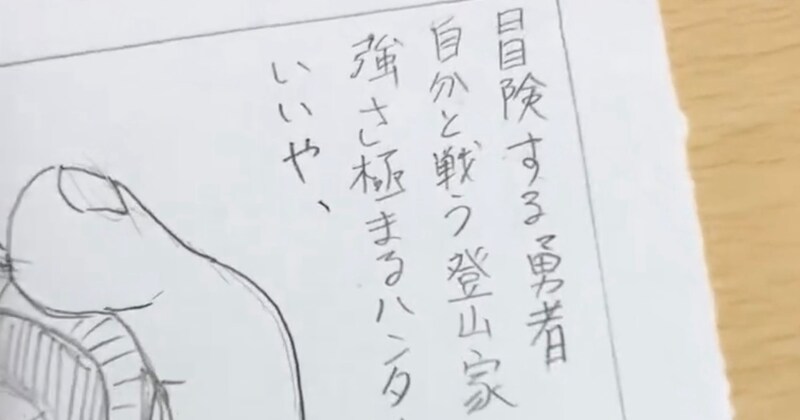 冒険する勇者
自分と戦う登山家
強さ極まるハンタ
いいや、